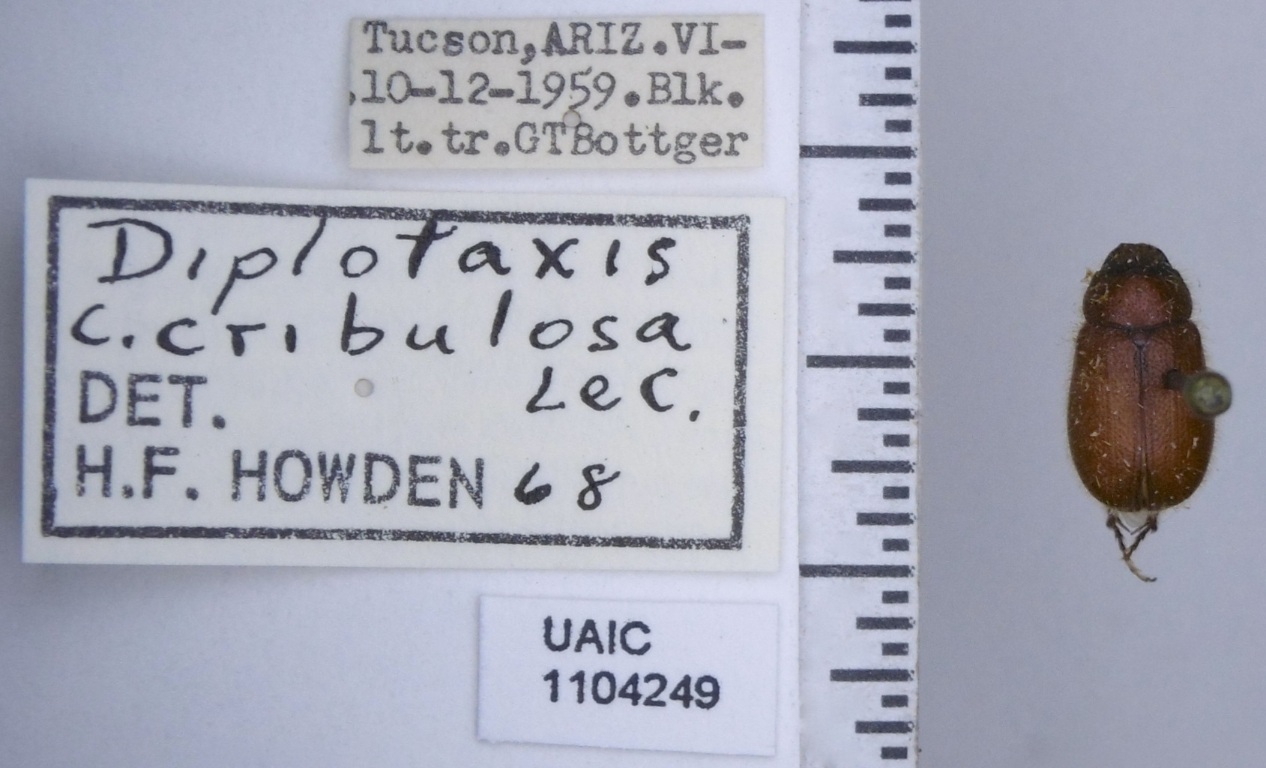 Tucson, ARIZ. VI-
10-12-1959. Blk.
lt. tr. GTBottger
Diplotaxis
c. cribulosa
LeC.
DET.
H.F. HOWDEN 68
UAIC
1104249